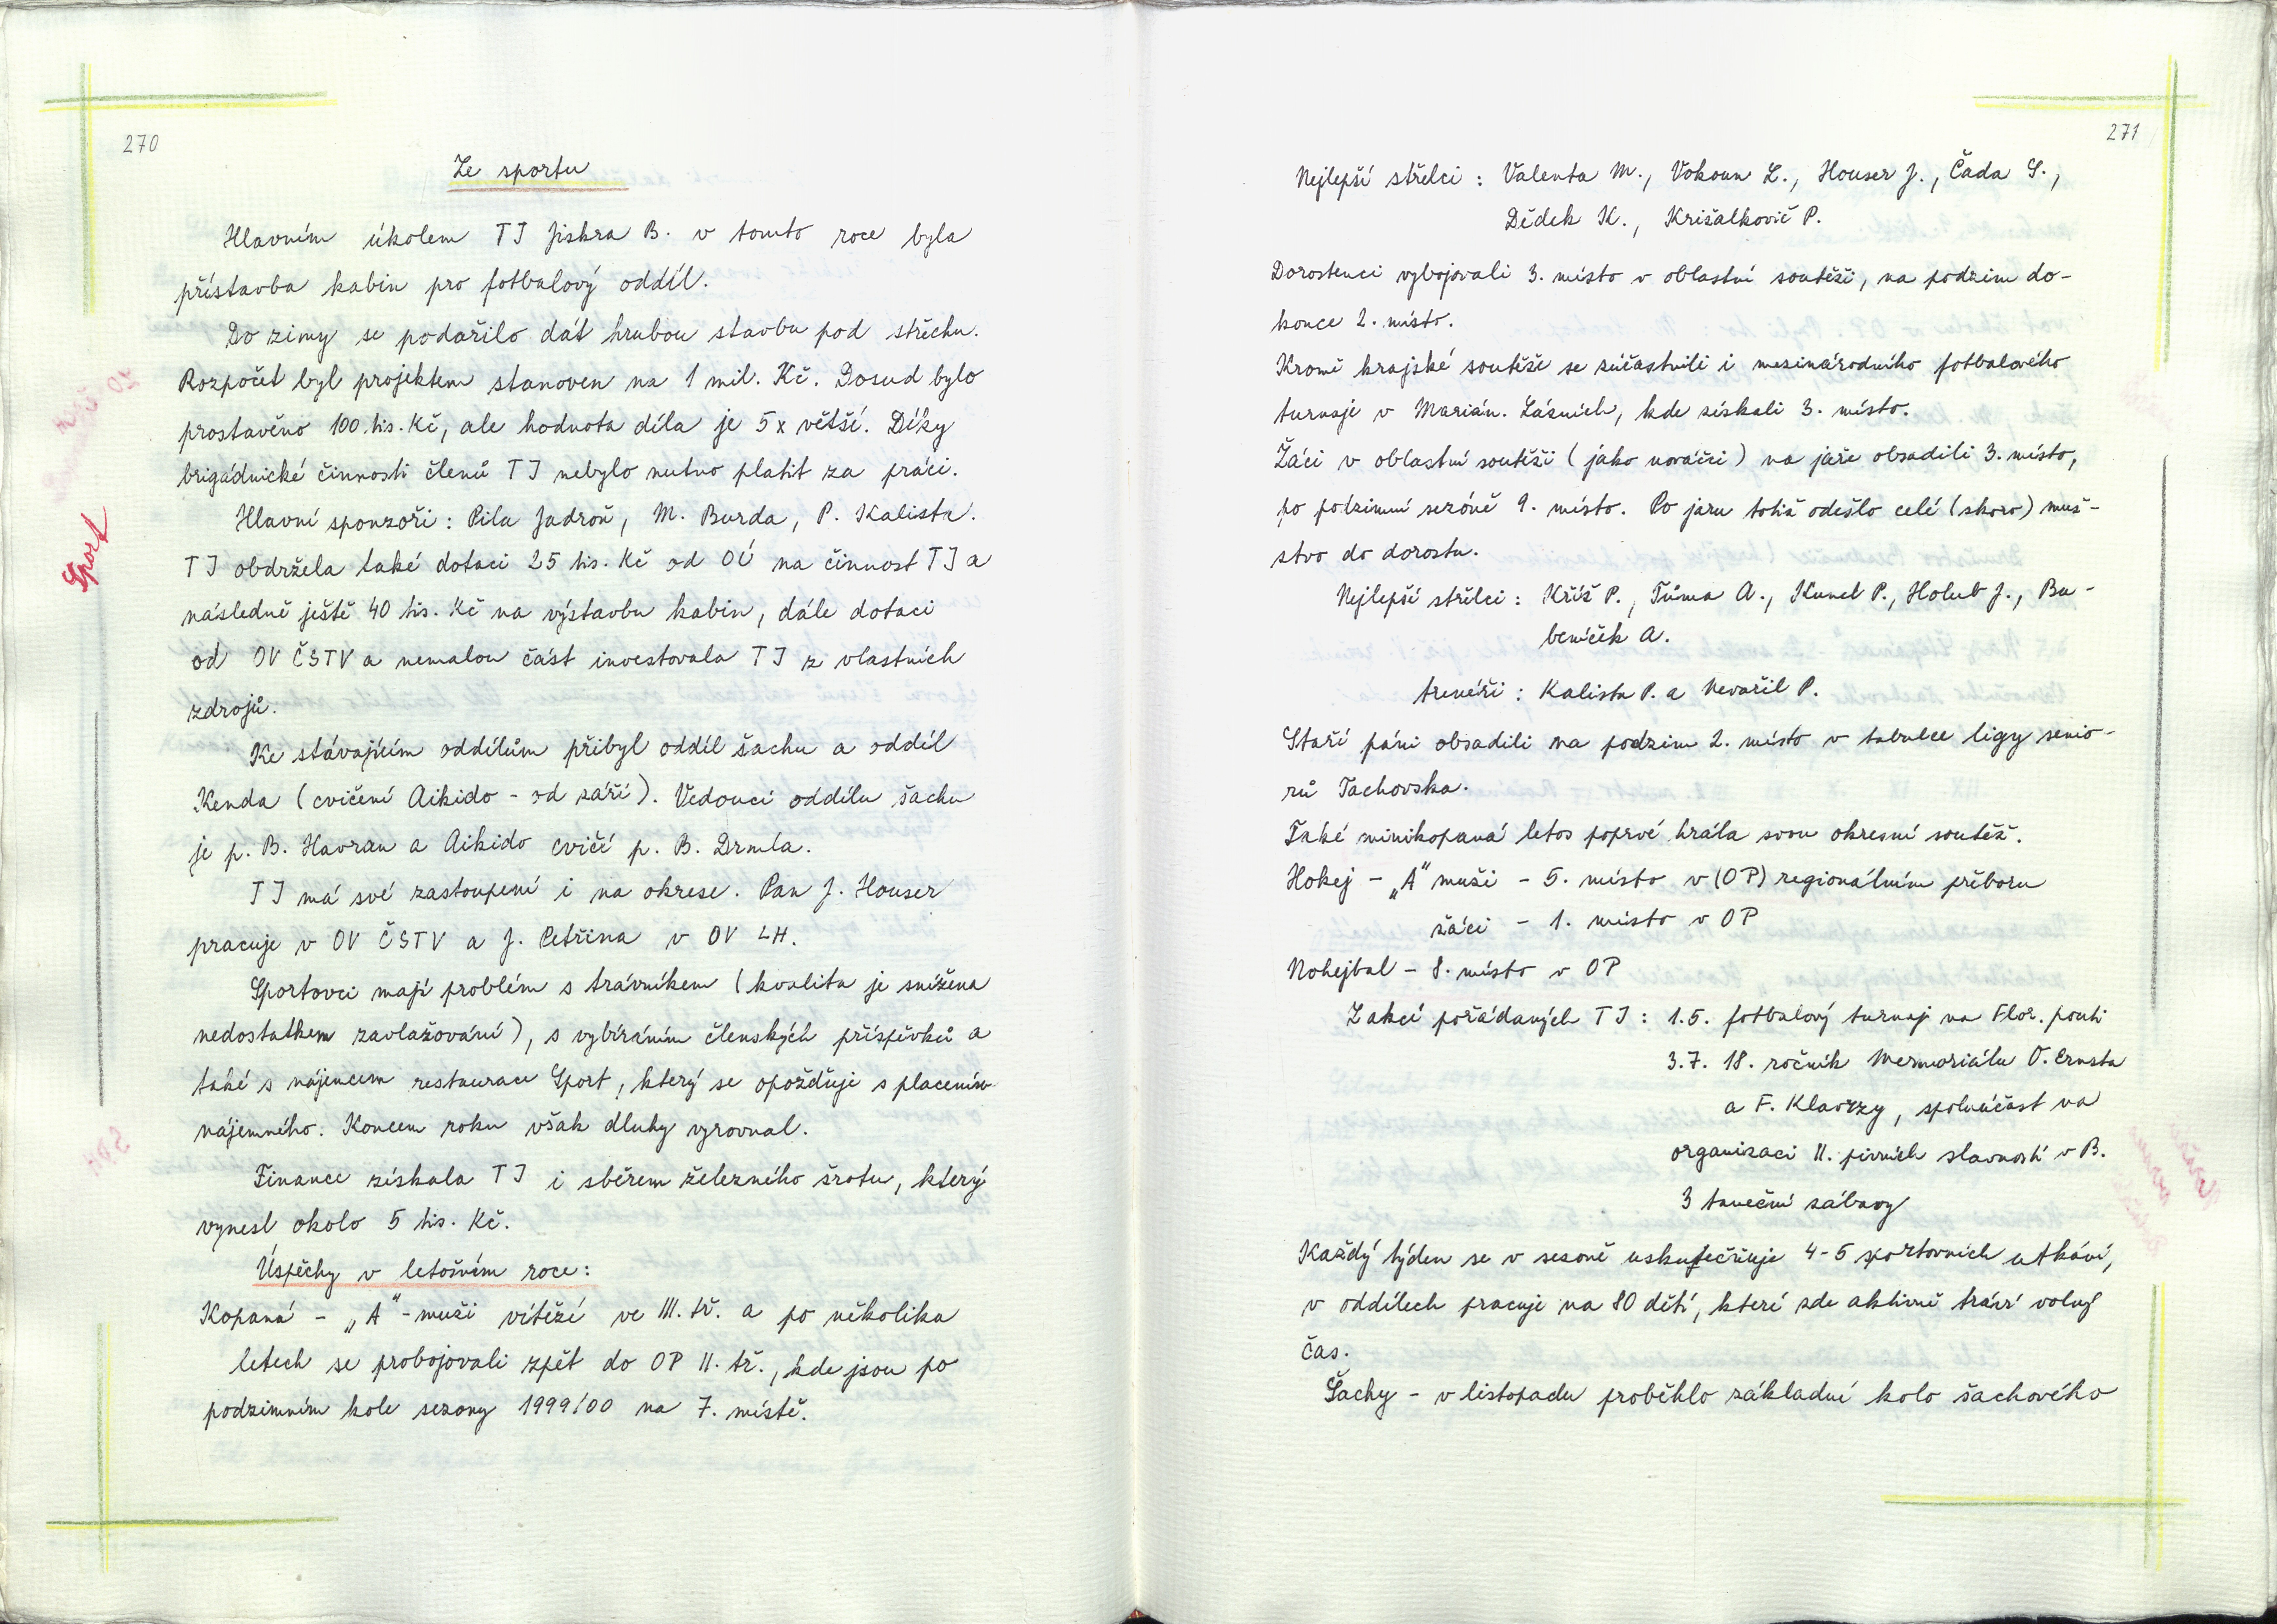 270
Ze sportu
Hlavním úkolem TJ Jiskra B. v tomto roce byla
přístavba kabin pro fotbalový oddíl.
Do zimy se podařilo dát hrubou stavbu pod střechu.
Rozpočet byl projektem stanoven na 1 mil. Kč. Dosud bylo
prostavěno 100 tis. Kč, ale hodnota díla je 5x větší. Díky
brigádnické činnosti členů TJ nebylo nutno platit za práci.
Hlavní sponzoři: Pila Jadroň, M. Burda, P. Kalista.
TJ obdržela také dotaci 25 tis. Kč od OÚ na činnost TJ a
následně ještě 40 tis. Kč na výstavbu kabin, dále dotaci
od OV ČSTV a nemalou část investovala TJ z vlastních
zdrojů.
Sport
Ke stávajícím oddílům přibyl oddíl šachu a oddíl
Kenda (cvičení Aikido - od září). Vedoucí oddílu šachu
je p. B. Havran a Aikido cvičí p. B. Drmla.
TJ má své zastoupení i na okrese. Pan J. Houser
pracuje v OV ČSTV a J. Petřina v OV LH.
Sportovci mají problém s trávníkem (kvalita je snížena
nedostatkem zavlažování), s vybíráním členských příspěvků a
také s nájemcem restaurace Sport, který se opožďuje s placením
nájemného. Koncem roku však dluhy vyrovnal.
Finance získala TJ i sběrem železného šrotu, který
vynesl okolo 5 tis. Kč.
Úspěchy v letošním roce:
Kopaná - „A"-muži vítězí ve III. tř. a po několika
letech se probojovali zpět do OP II. tř., kde jsou po
podzimním kole sezony 1999/00 na 7. místě.
271
Nejlepší střelci: Valenta M., Vokoun L., Houser J., Čada S.,
Dědek K., Krišalkovič P.
Dorostenci vybojovali 3. místo v oblastní soutěži, na podzim do-
konce 2. místo.
Kromě krajské soutěže se zúčastnili i mezinárodního fotbalového
turnaje v Marián. Lázních, kde získali 3. místo.
Žáci v oblastní soutěži (jako nováčci) na jaře obsadili 3. místo,
po podzimní sezóně 9. místo. Po jaru totiž odešlo celé (skoro) muž-
stvo do dorostu.
Nejlepší střelci: Kříž P., Tůma A., Kunel P., Holub J., Bu-
beníček A.
trenéři: Kalista P. a Nevařil P.
Staří páni obsadili na podzim 2. místo v tabulce ligy senio-
rů Tachovska.
Také minikopaná letos poprvé hrála svou okresní soutěž.
Hokej - „A" muži - 5. místo v (OP) regionálním přeboru
žáci - 1. místo v OP
Nohejbal - 8. místo v OP
Z akcí pořádaných TJ: 1.5. fotbalový turnaj na Flor. pouti
3.7. 18. ročník Memoriálu O. Ernsta
a F. Klavzzy, spoluúčast na
organizaci II. pivních slavností v B.
3 taneční zábavy
Každý týden se v sezoně uskutečňuje 4-5 sportovních utkání,
v oddílech pracuje na 80 dětí, které zde aktivně tráví volný
čas.
Šachy - v listopadu proběhlo základní kolo šachového